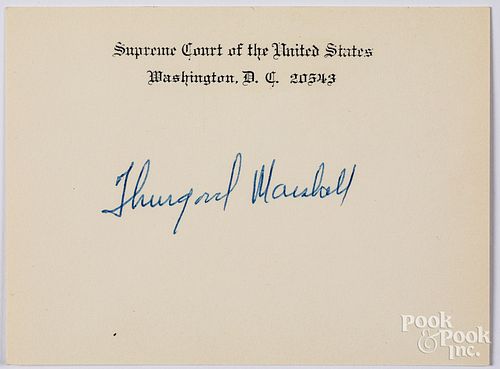 Supreme Court of the United States
Washington, D. C. 20543
Thurgood Marshall
POOK
& POOK
Inc.